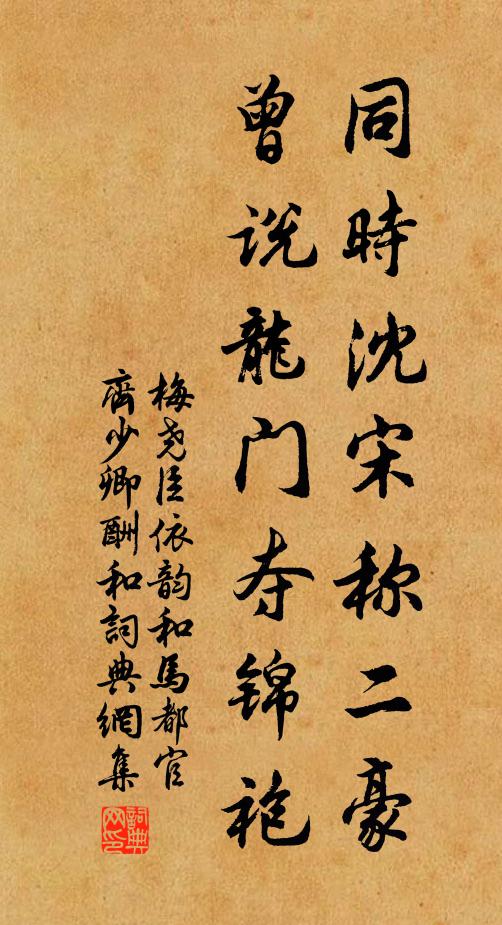 同時沈宋称二豪
曾说龍门夺锦袍
梅尧臣依韵和馬都官
齊少卿酬和詞典網集
詞典
网印